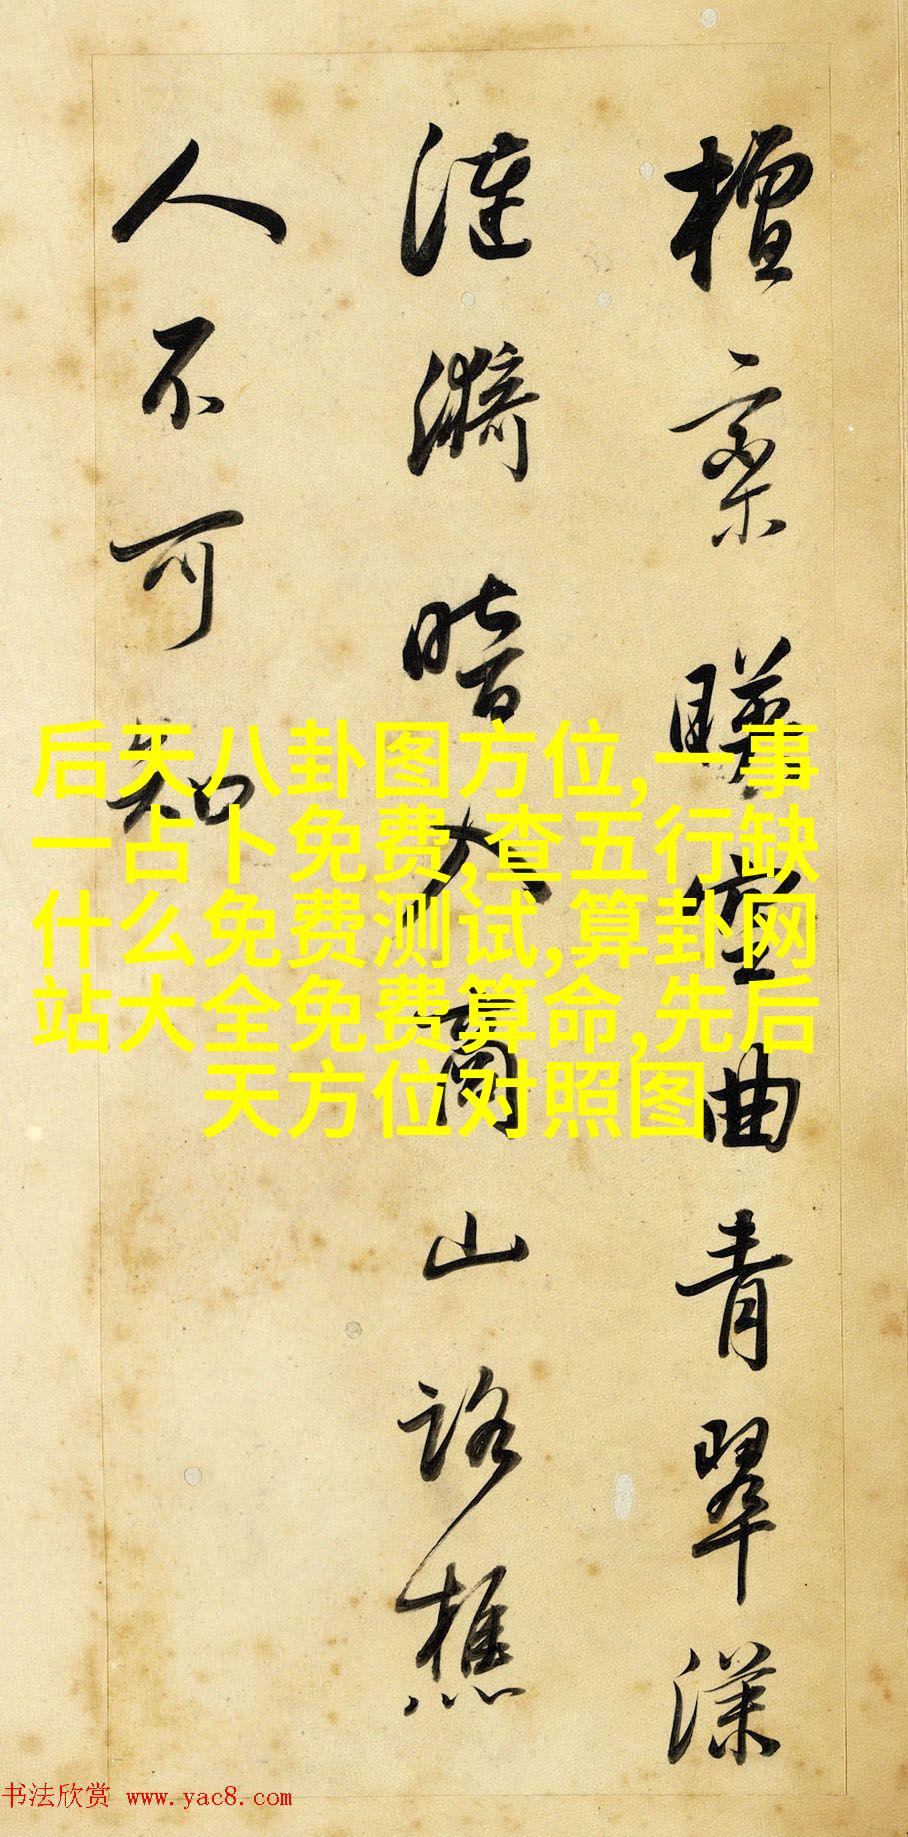 檀栾暎空曲青翠漾
涟漪暗入商山路樵
人不可知
后天八卦图方位,一事
一占卜免费,查五行缺
什么免费测试,算卦网
站大全免费算命,先后
天方位对照图
书法欣赏 www.yac8.com